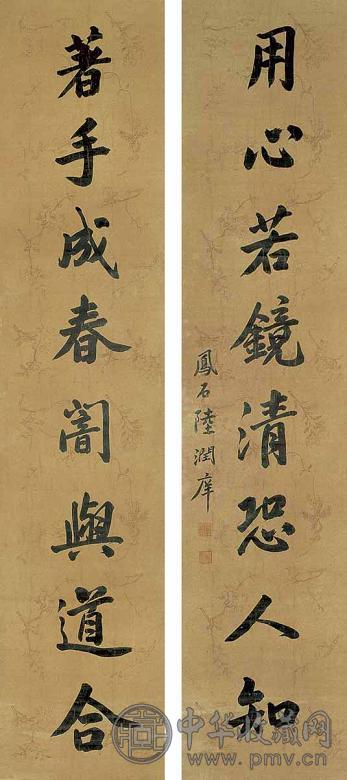 用心若鏡清恐人知
鳳石陸潤庠
著手成春闇與道合
中华收藏网
www.pmv.cn